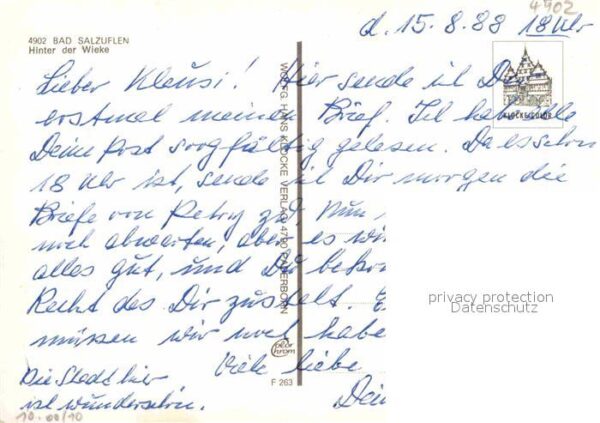 4902
d. 15.8.88 18 Uhr
4902 BAD SALZUFLEN
Hinter der Wieke
KLOCKECOLOR
WOLFG. HANS KLOCKE VERLAG, 4790 PADERBORN
Lieber Klausi! Hier sende ich Dir
erstmal meinen Brief. Ich habe alle
Deine Post sorgfältig gelesen. Da es schon
18 Uhr ist, sende ich Dir morgen die
Briefe von Petry zu, Nun
noch abwarten, aber es wi
alles gut, und Du bekom
Recht das Dir zusteht. E
müssen wir noch habe
Viele liebe
Dein
Die Stadt hier
ist wunderschön.
color chrom
F 263
10.00/10
privacy protection
Datenschutz